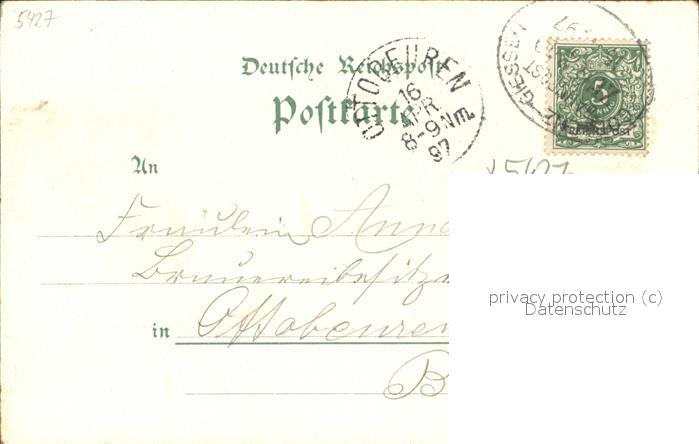 5427
Deutsche Reichspost
Postkarte
OTTOBEUREN
16
APR
8-9 N
97
GIESSEN
97
3
An
5427
Fräulein Anna
Brauereibesitz
in Ottobeuren
B
privacy protection (c)
Datenschutz